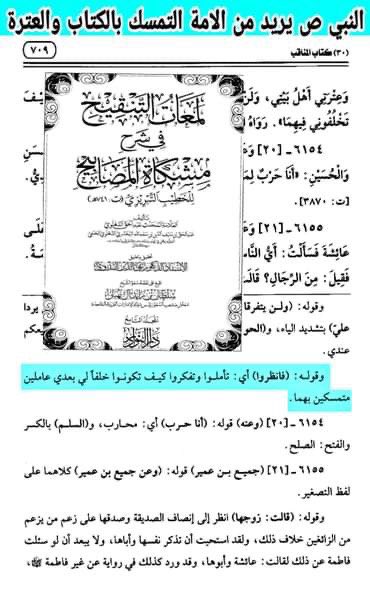 النبي ص يريد من الامة التمسك بالكتاب والعترة
(٣٠) كتاب المناقب
٧٠٩
وَعِتْرَتِي أَهْلُ بَيْتِي، وَلَنْ
تَخْلُفُونِي فِيهِمَا». رَوَاهُ
٦١٥٤ ـ [٢٠] وَعَ
وَالْحُسَيْنِ: «أَنَا حَرْبٌ لِمَ
[ت: ٣٨٧٠].
٦١٥٥ ـ [٢١] وَعَ
عَائِشَةَ فَسَأَلْتُ: أَيُّ النَّا
فَقِيلَ: مِنَ الرِّجَالِ؟ قَالَتْ
لمعات التنقيح
في شرح
مشكاة المصابيح
للخطيب التبريزي (ت ٧٤١هـ)
دار النوادر
وقوله: (ولن يتفرقا
عليّ) بتشديد الياء، و(الحو
عندي.
وقولـه: (فانظروا) أي: تأملـوا وتفكروا كيـف تكونـوا خلفاً لي بعدي عاملين
متمسكين بهما.
٦١٥٤ ـ [٢٠] (وعنه) قوله: (أنا حـرب) أي: محارب، و(السلـم) بالكسر
والفتح: الصلح.
٦١٥٥ ـ [٢١] (جميع بـن عمير) قوله: (وعن جميع بن عمير) كلاهما على
لفظ التصغير.
وقوله: (قالت: زوجها) انظر إلى إنصاف الصديقة وصدقها على زعم من يزعم
من الزائغين خلاف ذلك، ولقد استحيت أن تذكر نفسه وأباها، ولا يبعد أن لو سئلت
فاطمة عن ذلك لقالت: عائشة وأبوها، وقد ورد كذلك في رواية عن غير فاطمة ﷺ،